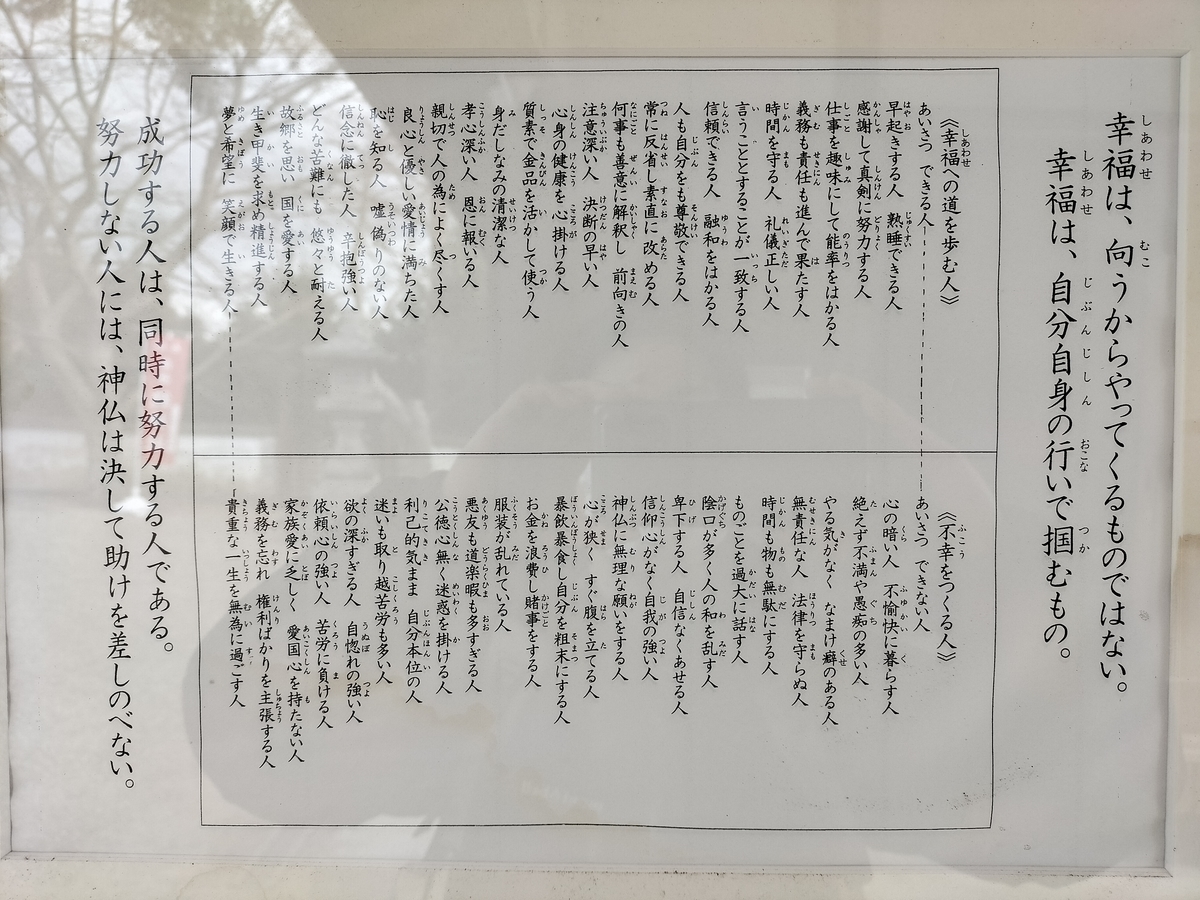 幸福は、向うからやってくるものではない。
幸福は、自分自身の行いで掴むもの。
《幸福への道を歩む人》
あいさつ できる人
早起きする人 熟睡できる人
感謝して真剣に努力する人
仕事を趣味にして能率をはかる人
義務も責任も進んで果たす人
時間を守る人 礼儀正しい人
言うこととすることが一致する人
信頼できる人 融和をはかる人
人も自分をも尊敬できる人
常に反省し素直に改める人
何事も善意に解釈し 前向きの人
注意深い人 決断の早い人
心身の健康を心掛ける人
質素で金品を活かして使う人
身だしなみの清潔な人
孝心深い人 恩に報いる人
親切で人の為によく尽くす人
良心と優しい愛情に満ちた人
恥を知る人 嘘偽りのない人
信念に徹した人 辛抱強い人
どんな苦難にも 悠々と耐える人
故郷を思い 国を愛する人
生き甲斐を求め精進する人
夢と希望に 笑顔で生きる人
《不幸をつくる人》
あいさつ できない人
心の暗い人 不愉快に暮らす人
絶えず不満や愚痴の多い人
やる気がなく なまけ癖のある人
無責任な人 法律を守らぬ人
時間も物も無駄にする人
ものごとを過大に話す人
陰口が多く人の和を乱す人
卑下する人 自信なくあせる人
信仰心がなく自我の強い人
神仏に無理な願いをする人
心が狭く すぐ腹を立てる人
暴飲暴食し自分を粗末にする人
お金を浪費し賭事をする人
服装が乱れている人
悪友も道楽暇も多すぎる人
公徳心無く迷惑を掛ける人
利己的気まま 自分本位の人
迷いも取り越苦労も多い人
欲の深すぎる人 自惚れの強い人
依頼心の強い人 苦労に負ける人
家族愛に乏しく 愛国心を持たない人
義務を忘れ 権利ばかりを主張する人
貴重な一生を無為に過ごす人
成功する人は、同時に努力する人である。
努力しない人には、神仏は決して助けを差しのべない。